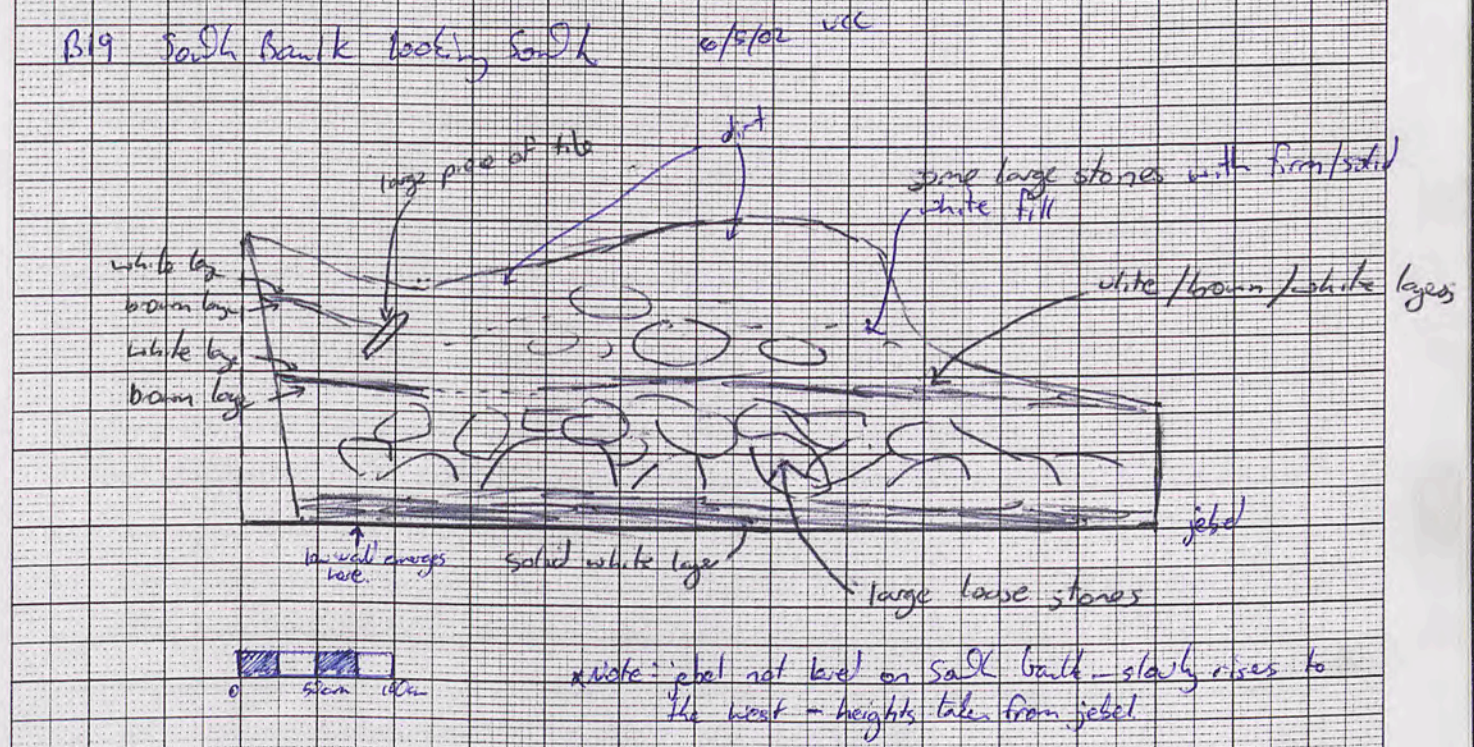 B19 South Baulk looking South 6/5/02 VCC
dirt
large piece of tile
some large stones with firm/solid
white fill
white layer
brown layer
white layer
brown layer
white/brown/white layers
jebel
low wall emerges
here.
solid white layer
large loose stones
0 50cm 100cm
*Note: jebel not level on South baulk - slowly rises to
the west - heights taken from jebel.